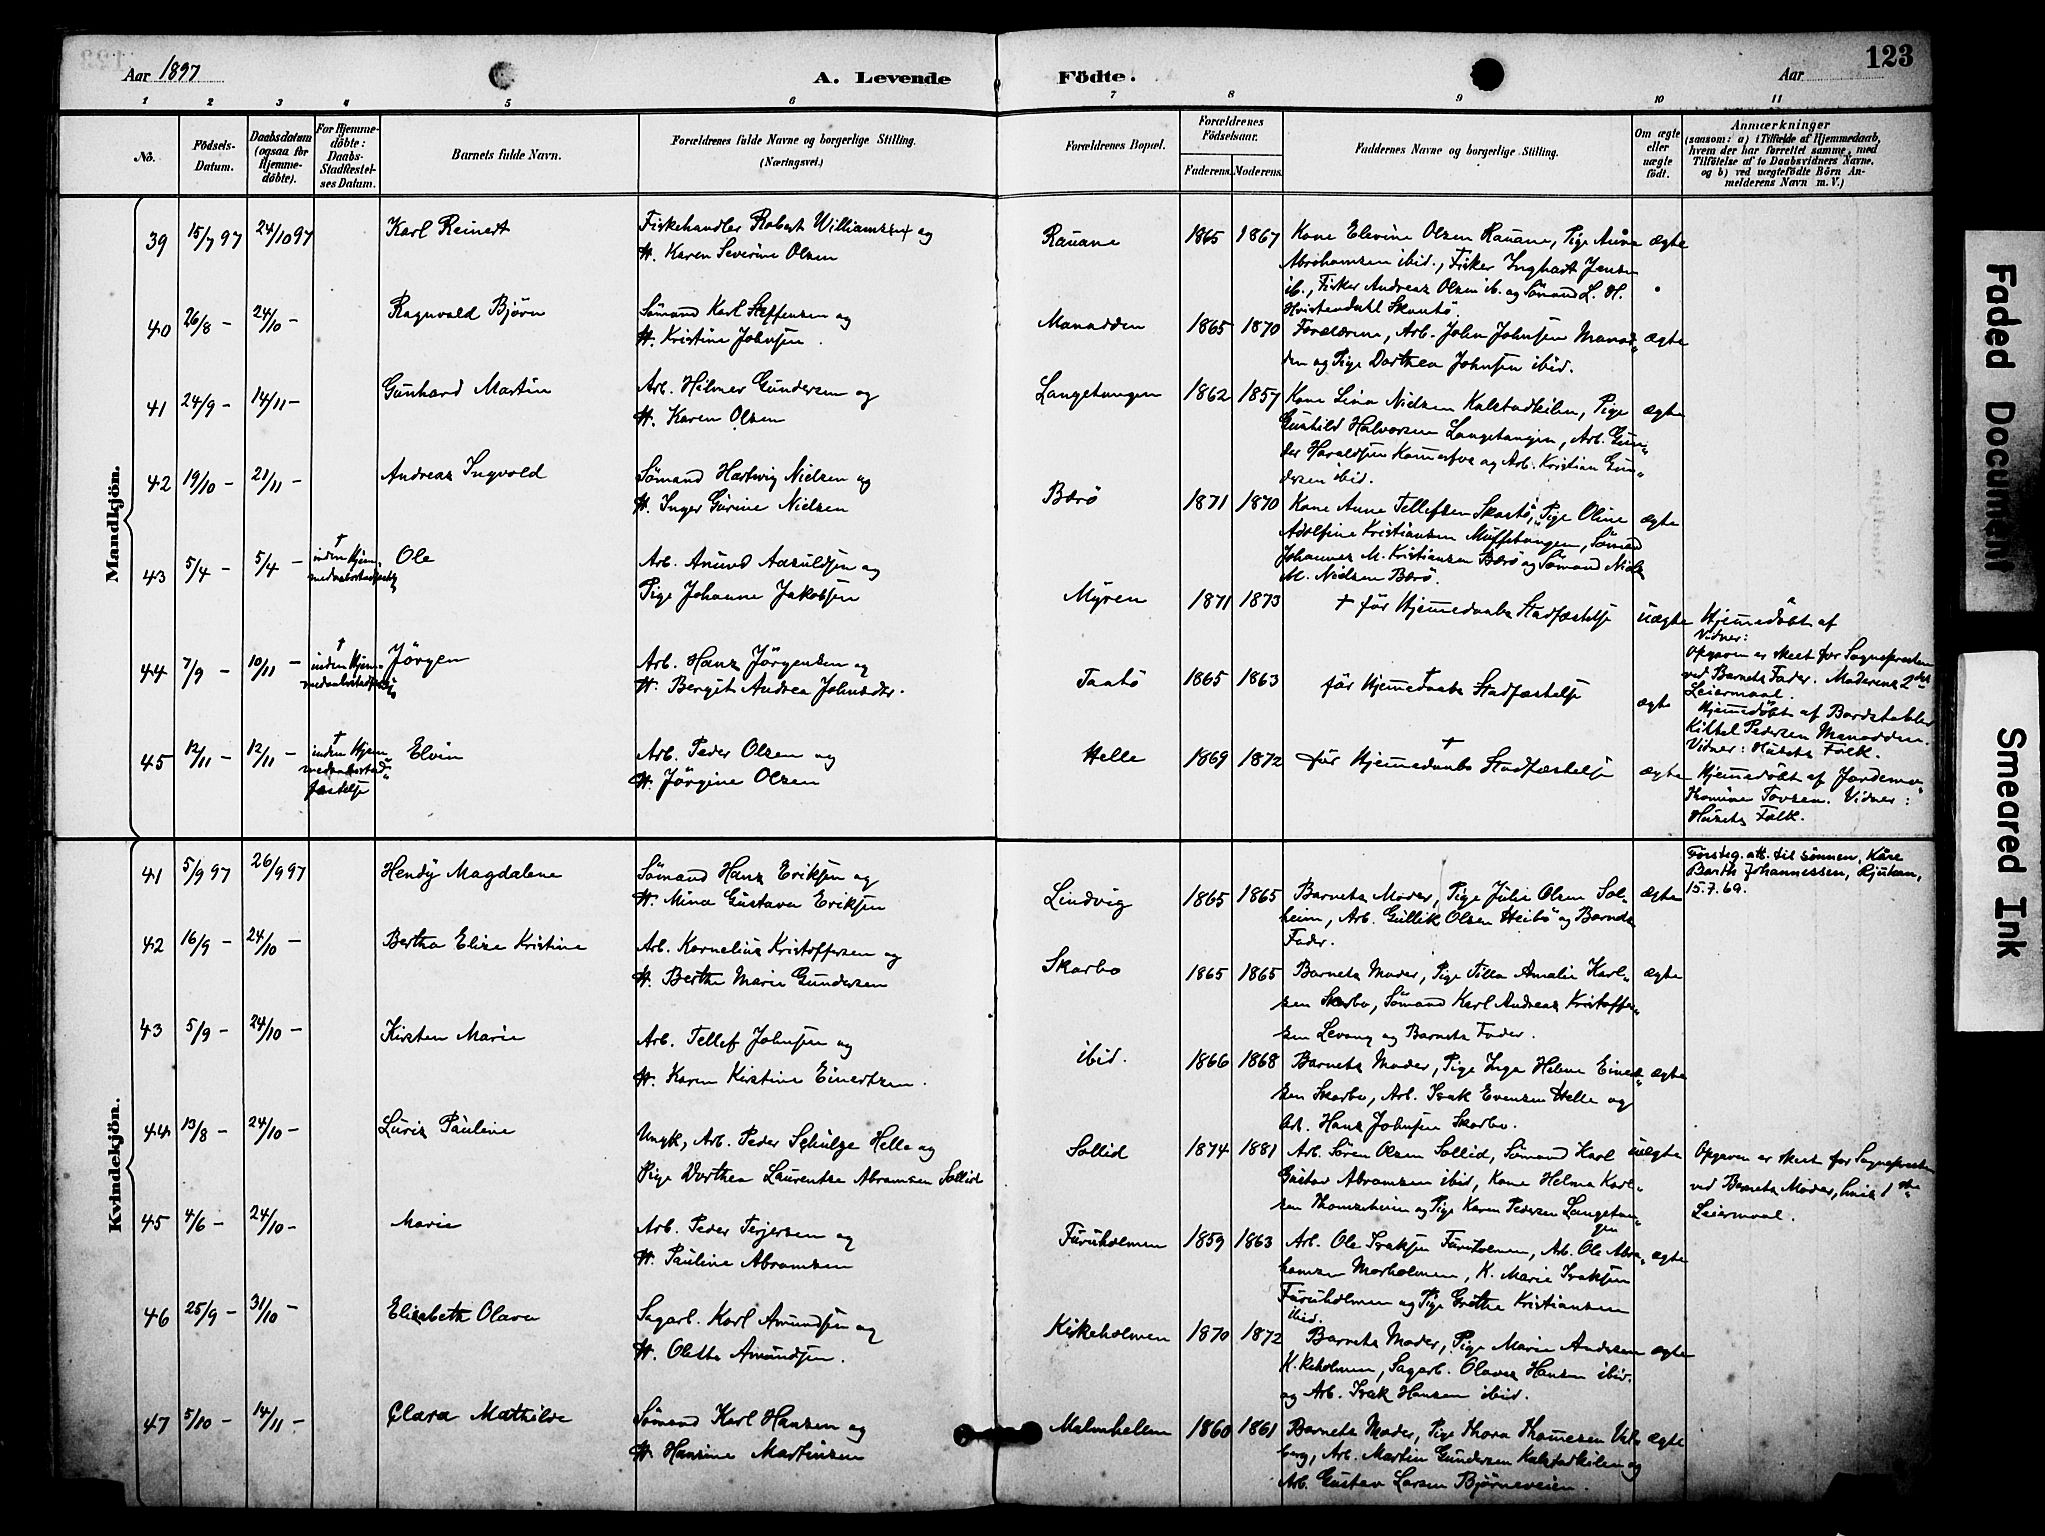 Aar 1897
A. Levende Födte.
Aar
123
1 2 3 4 5 6 7 8 9 10 11
No.
Födsels-Datum.
Daabsdatum (ogsaa for Hjemme-döbte).
For Hjemme-döbte: Daabs-Stadfæstel-ses Datum.
Barnets fulde Navn.
Forældrenes fulde Navne og borgerlige Stilling. (Næringsvei.)
Forældrenes Bopæl.
Forældrenes Födselsaar.
Faderens. Moderens.
Faddernes Navne og borgerlige Stilling.
Om ægte eller uægte födt.
Anmærkninger
(saasom: a) i Tilfælde af Hjemmedaab,
hvem der har forrettet samme, med
Tilföielse af to Daabsvidners Navne.
og b) ved uægtefödte Börn An-
melderens Navn m. V.)
Mandkjön.
39 15/7 97 24/10 97 Karl Reinert
Fiskehandler Robert Williamsen og
H. Karen Severine Olsen
Rauane 1865 1867
Kone Elevine Olsen Rauane, Pige Anna
Abrahamsen ibid., Fisker Inghart Jensen
ib., Fisker Andreas Olsen ib. og Sømand L. H.
Hvistendahl Skaatø.
ægte
40 26/8 - 24/10 - Ragnvald Bjørn
Sømand Karl Steffensen og
H. Kristine Johnsen.
Manodden 1865 1870
Forældrene, Arb. John Johnsen Manod-
den og Pige Dorthea Johnsen ibid.
ægte
41 24/9 - 14/11 - Gunhard Martin
Arb. Hilmer Gundersen og
H. Karen Olsen
Langetangen 1862 1857
Kone Lina Nielsen Kalstadkilen, Pige
Gunhild Halvorsen Langetangen, Arb. Gun-
der Haraldsen Kammerfos og Arb. Kristian Gun-
dersen ibid.
ægte
42 19/10 - 21/11 - Andreas Ingvold
Sømand Hartvig Nielsen og
H. Inger Gurine Nielsen
Bærø 1871 1870
Kone Anne Tellefsen Skaatø, Pige Oline
Adolfine Kristiansen Muffetangen, Sømand
Johannes M. Kristiansen Bærø og Sømand Niels
M. Nielsen Bærø.
ægte
43 5/4 - 5/4 - † inden Hjem- Ole
Arb. Anund Aasuldsen og
Pige Johanne Jakobsen
Myren 1871 1873
† før Hjemmedaabs Stadfæstelse
uægte
Hjemmedøbt af
Vidner:
Opgaven er skeet for Sognepresten
ved Barnets Fader. Moderens 2det
Leiermaal.
44 7/9 - 10/11 - † inden Hjem- Jørgen
Arb. Hans Jørgensen og
H. Bergit Andrea Johnsdtr.
Taatø 1865 1863
† før Hjemmedaabs Stadfæstelse
ægte
Hjemmedøbt af
Kittel Pedersen Manodden.
Vidner: Husets Folk.
45 12/11 - 12/11 - † inden Hjem-
medaabsstad-
fæstelse
Elvin
Arb. Peder Olsen og
H. Jørgine Olsen
Helle 1869 1872
† før Hjemmedaabs Stadfæstelse
ægte
Hjemmedøbt af Jordemo-
Tovsen. Vidner:
Husets Folk.
Kvindekjön.
41 5/9 97 26/9 97 Hendy Magdalene
Sømand Hans Eriksen og
H. Mina Gustava Eriksen
Lindvig 1865 1865
Barnets Moder, Pige Julie Olsen Sol-
heim, Arb. Gullik Olsen Heibø og Barnets
Fader.
ægte
Førsteg. att. til sønnen, Kåre
Barth Johannessen, Rjukan,
15.7.69.
42 16/9 - 24/10 - Bertha Elise Kristine
Arb. Kornelius Kristoffersen og
H. Berthe Marie Gundersen
Skarbo 1865 1865
Barnets Moder, Pige Tilla Amalie Karl-
sen Skarbo, Sømand Karl Andreas Kristoffer-
sen Levang og Barnets Fader.
ægte
43 5/9 - 24/10 - Kirsten Marie
Arb. Tellef Johnsen og
H. Karen Kirstine Einertsen.
ibid. 1866 1868
Barnets Moder, Pige Inga Helene Einert-
sen Skarbo, Arb. Isak Evensen Helle og
Arb. Hans Johnsen Skarbo.
ægte
44 13/8 - 24/10 - Lovis Pauline
Ungk, Arb. Peder Schulze Helle og
Pige Dorthea Laurentse Abramsen Sollid
Sollid 1874 1881
Arb. Søren Olsen Sollid, Sømand Karl
Gustav Abramsen ibid, Kone Helma Karl-
sen Thomasheim og Pige Karen Pedersen Langetan-
gen
uægte
Opgaven er skeet for Sognepresten
ved Barnets Moder, hvis 1ste
Leiermaal.
45 4/6 - 24/10 - Marie
Arb. Peder Terjersen og
H. Pauline Abramsen
Furuholmen 1859 1863
Arb. Ole Isaksen Furuholmen, Arb. Ole Abra-
hamsen Morholmen, K. Marie Isaksen
Furuholmen og Pige Grethe Kristiansen
ibid.
ægte
46 25/9 - 31/10 - Elisabeth Olava
Sagarb. Karl Amundsen og
H. Olette Amundsen.
Kirkeholmen 1870 1872
Barnets Moder, Pige Marie Andersen
Kirkeholmen, Sagarb. Olaves Hansen ibid.
og Arb. Isak Hansen ibid.
ægte
47 5/10 - 14/11 - Clara Mathilde
Sømand Karl Hansen og
H. Hansine Martinsen
Malmhellen 1860 1861
Barnets Moder, Pige Thora Thomesen Val-
berg, Arb. Martin Gundersen Kalstadkilen og
Arb. Gustav Larsen Bjørneveien.
ægte
Faded Document
Smeared Ink